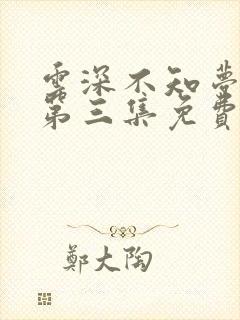 雲深不知夢
第三集免費
鄭大陶